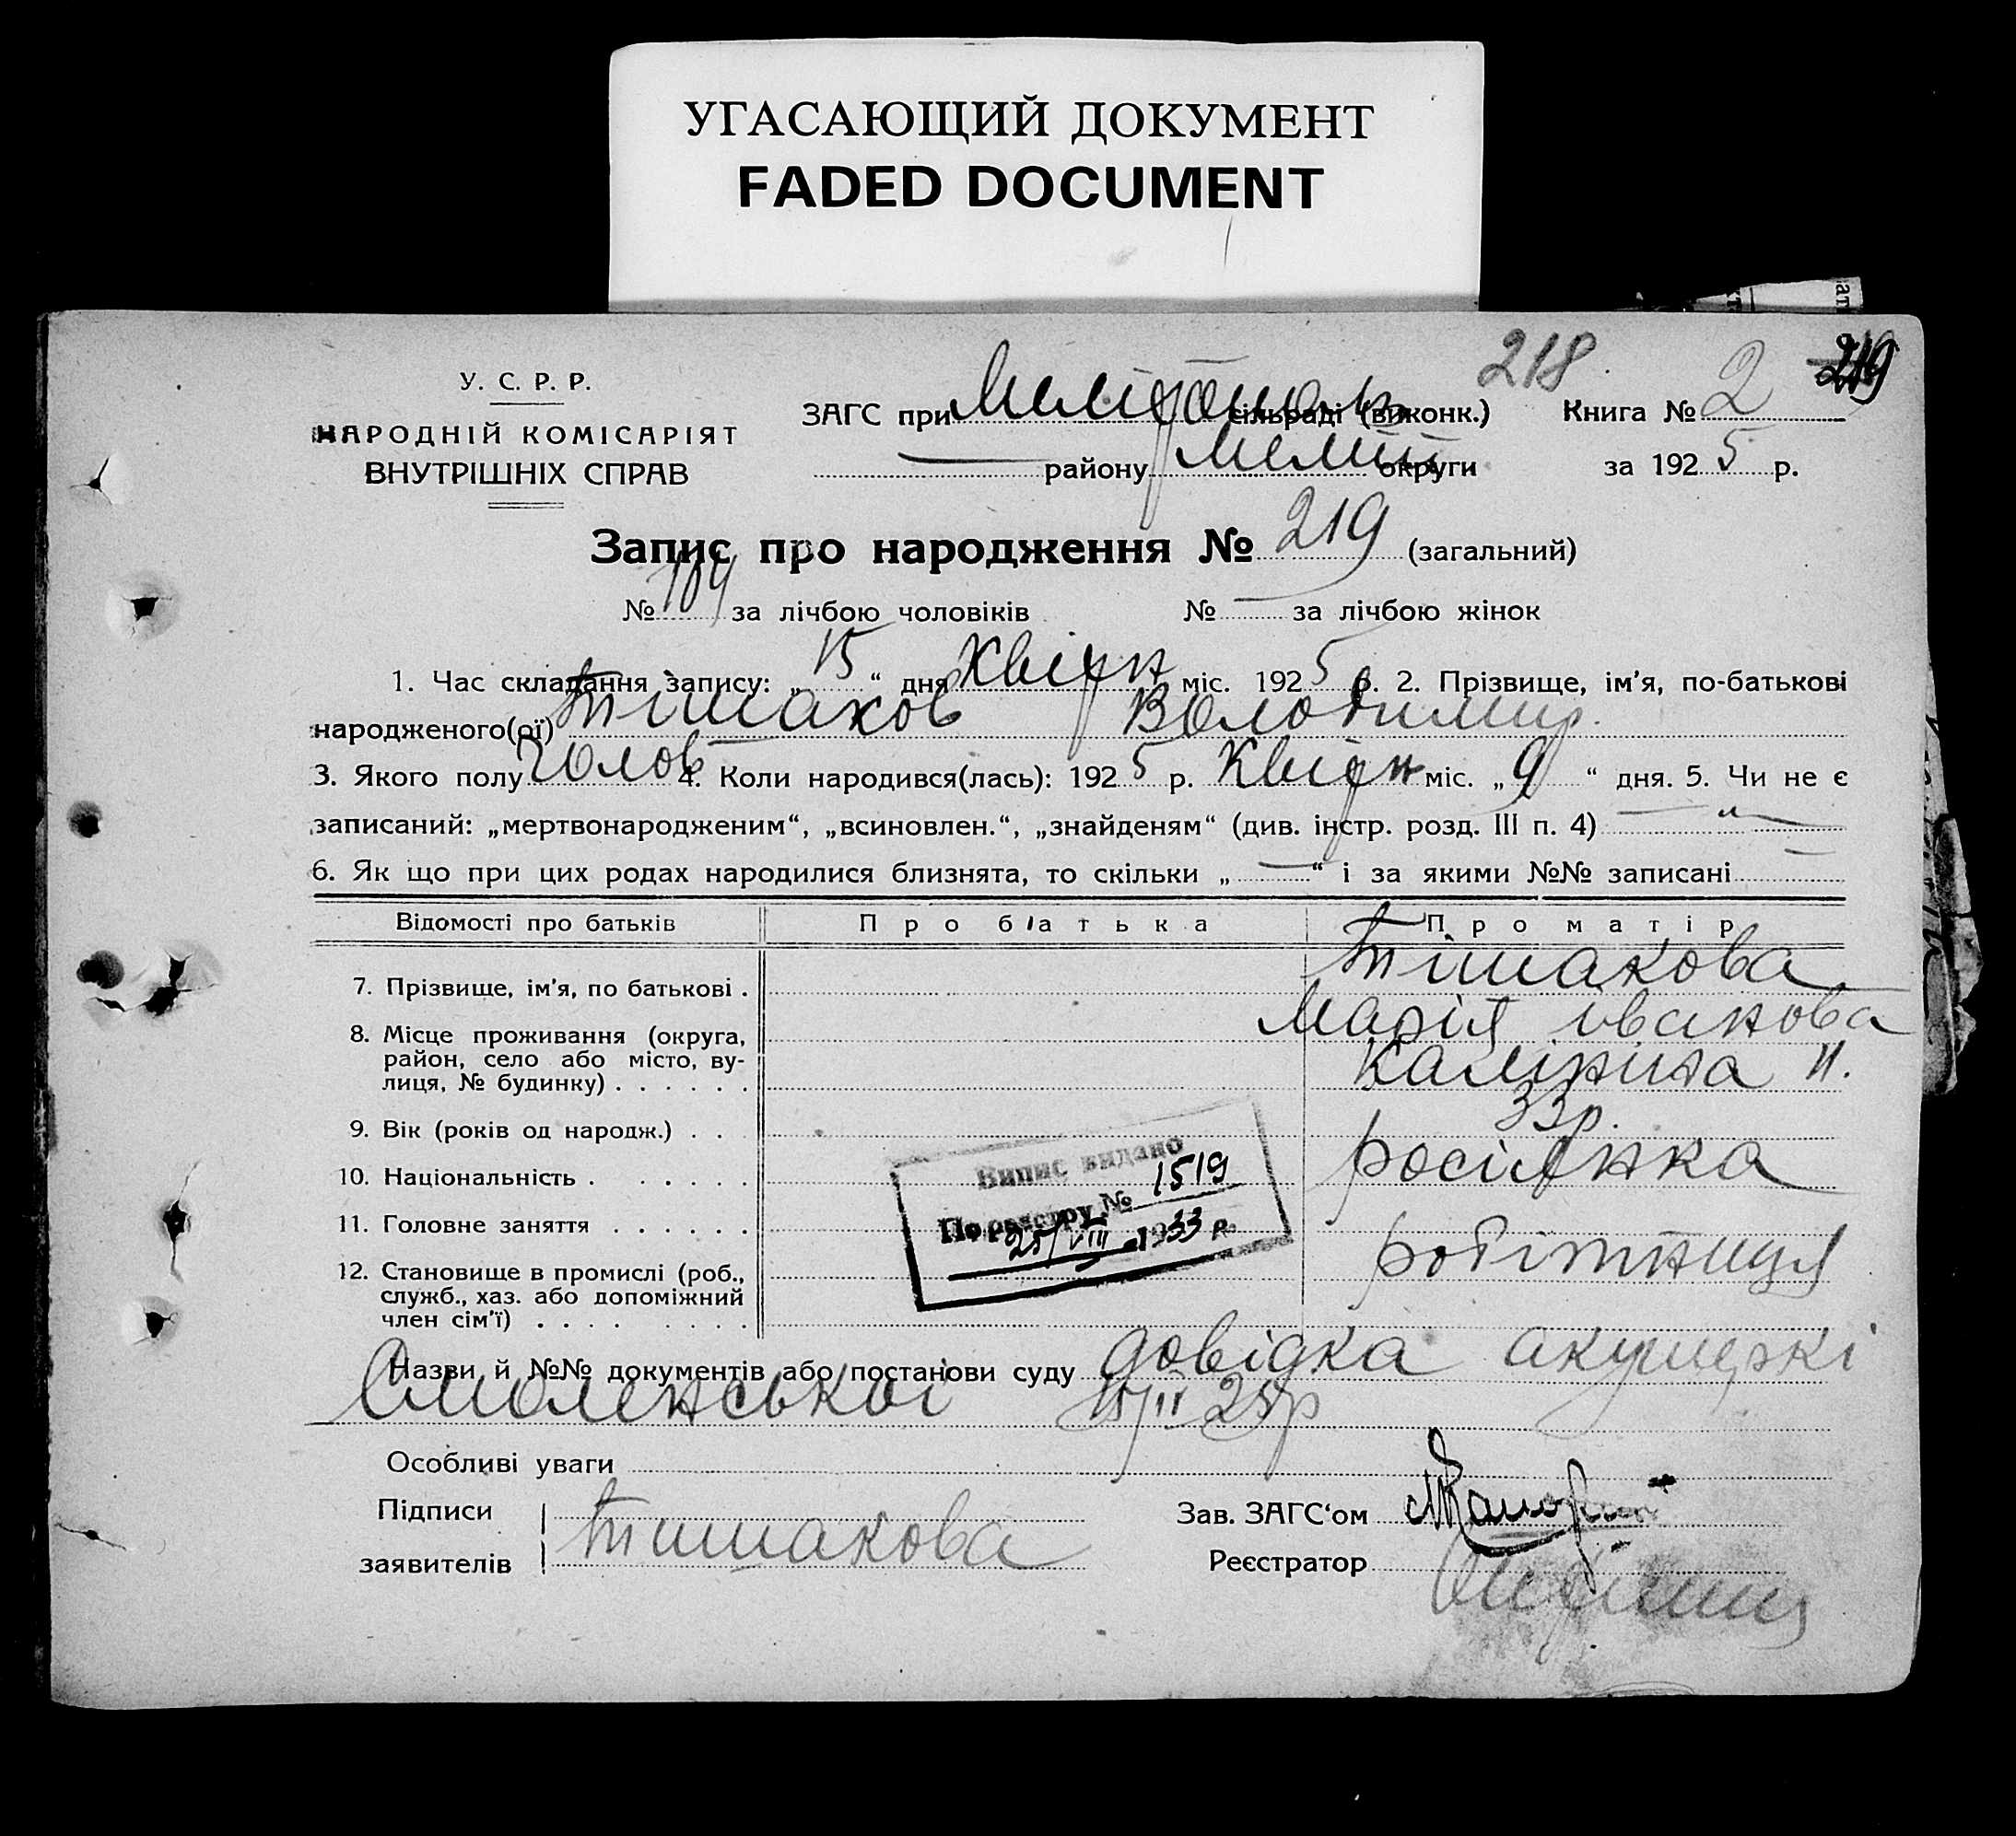 УГАСАЮЩИЙ ДОКУМЕНТ
FADED DOCUMENT
218
219
У. С. Р. Р.
НАРОДНІЙ КОМІСАРІЯТ
ВНУТРІШНІХ СПРАВ
ЗАГС при Меліто сільраді (виконк.) Книга № 2
— району Меліт округи за 1925 р.
Запис про народження № 219 (загальний)
№ 109 за лічбою чоловіків № — за лічбою жінок
1. Час складання запису: „15“ дня Квітн міс. 1925 р. 2. Прізвище, ім'я, по-батькові
народженого(ої) Тішаков Володимир.
3. Якого полу Чолов 4. Коли народився(лась): 1925 р. Квітн міс. „9“ дня. 5. Чи не є
записаний: „мертвонародженим“, „всиновлен.“, „знайденям“ (див. інстр. розд. III п. 4) — „ —
6. Як що при цих родах народилися близнята, то скільки „—“ і за якими №№ записані —
Відомості про батьків Про батька Про матір
7. Прізвище, ім'я, по батькові . Тішакова
Марія Іванова
8. Місце проживання (округа,
район, село або місто, ву-
лиця, № будинку) . . . . . . Калініна 11.
9. Вік (років од народж.) . . . 33р.
10. Національність . . . . . . росіянка
11. Головне заняття . . . . . .
12. Становище в промислі (роб.,
служб., хаз. або допоміжний
член сім'ї) . . . . . . . . робітниця
Випис видано
По реєстру № 1519
25/VIII 1933 р.
Назви й №№ документів або постанови суду довідка акушеркі
Смоленської 15/II 25р
Особливі уваги
Підписи
заявителів Тишакова
Зав. ЗАГС'ом
Реєстратор